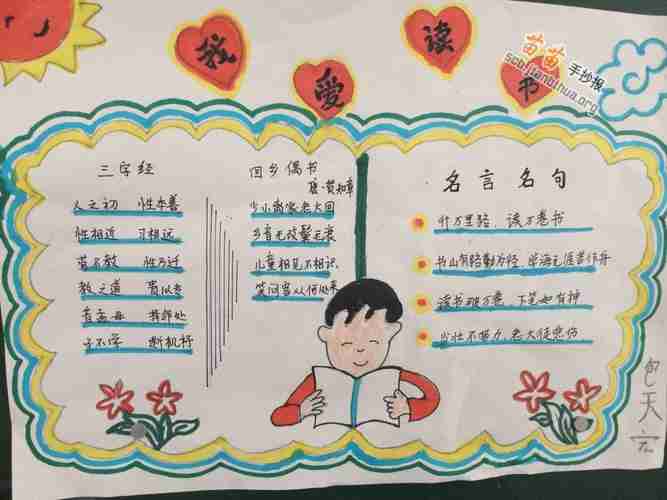 我
爱
读
书
苗苗
手抄报
三字经
人之初 性本善
性相近 习相远
苟不教 性乃迁
教之道 贵以专
昔孟母 择邻处
子不学 断机杼
回乡偶书
唐·贺知章
少小离家老大回
乡音无改鬓毛衰
儿童相见不相识
笑问客从何处来
名言名句
行万里路，读万卷书
书山有路勤为径，学海无涯苦作舟
读书破万卷，下笔如有神
少壮不努力，老大徒悲伤